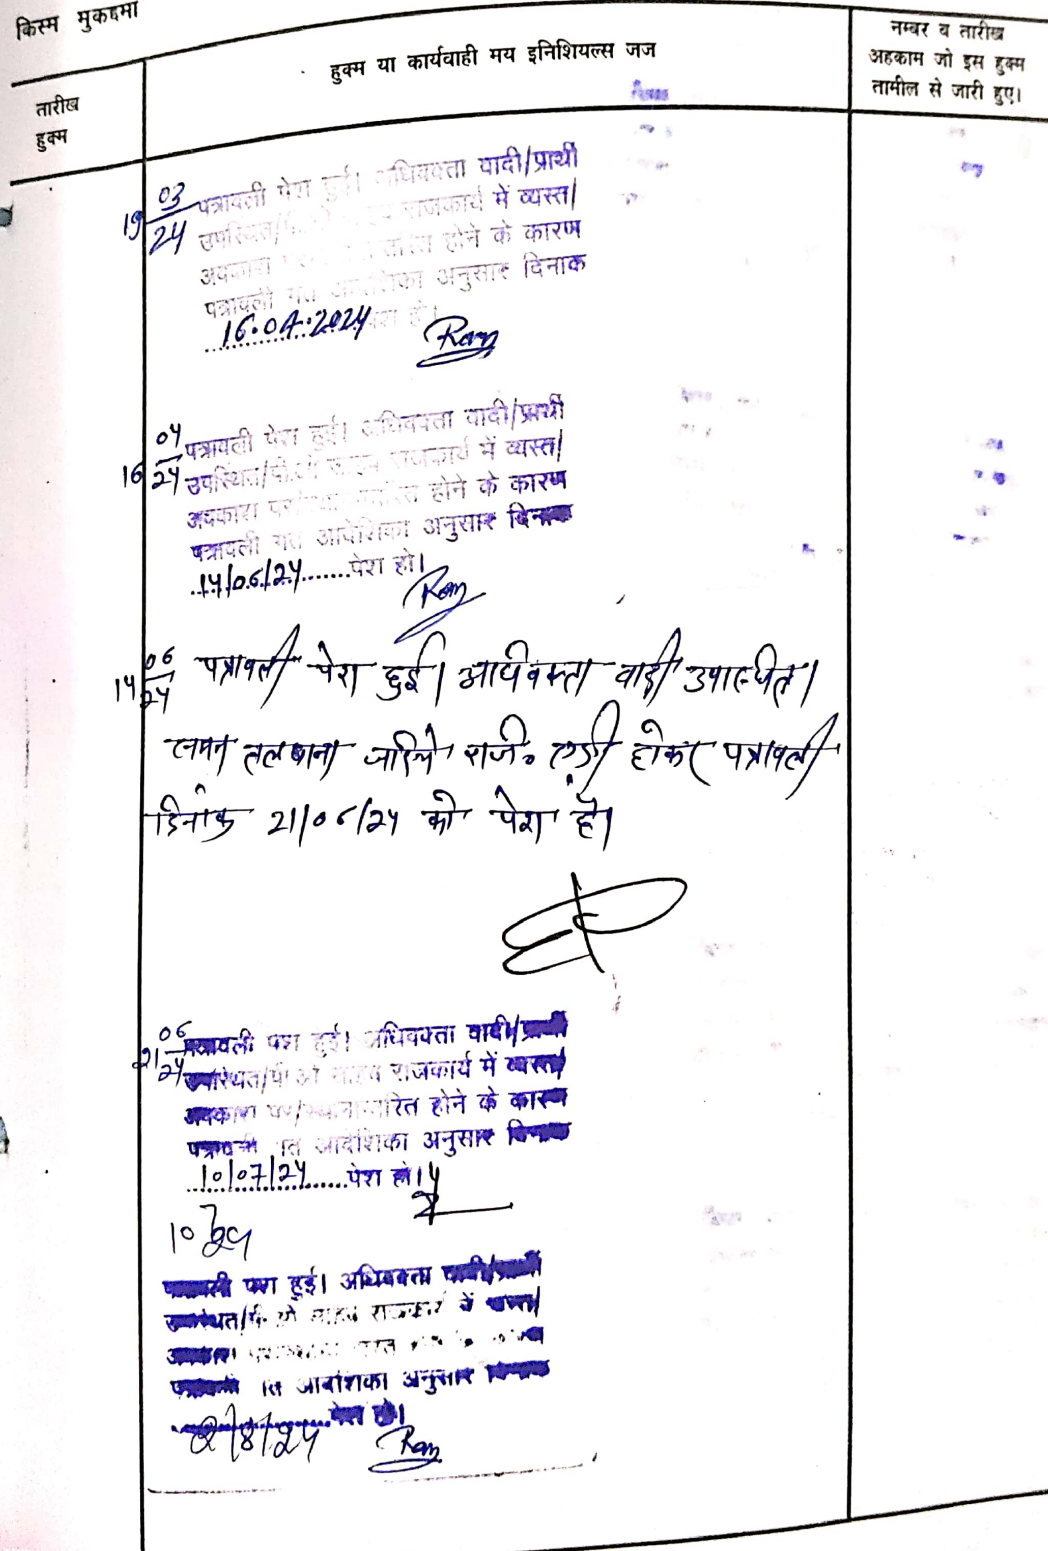 किस्म मुकद्दमा
तारीख
हुक्म
हुक्म या कार्यवाही मय इनिशियल्स जज
नम्बर व तारीख
अहकाम जो इस हुक्म
तामील से जारी हुए।
19 03/24
पत्रावली पेश हुई। अधिवक्ता वादी/प्रार्थी
उपस्थित/ राजकार्य में व्यस्त/
अवकाश होने के कारण
पत्रावली गत आदेशिका अनुसार दिनांक
16.04.2024 पेश हो।
Ram
16 04/24
पत्रावली पेश हुई। अधिवक्ता वादी/प्रार्थी
उपस्थित/पी.ओ साहब राजकार्य में व्यस्त/
अवकाश पर होने के कारण
पत्रावली गत आदेशिका अनुसार दिनांक
14/06/24 पेश हो।
Ram
14 06/24
पत्रावली पेश हुई। अधिवक्ता वादी उपस्थित।
तलबाना जरिये रजि० होकर पत्रावली
दिनांक 21/06/24 को पेश हो।
21 06/24
पत्रावली पेश हुई। अधिवक्ता वादी/प्रार्थी
उपस्थित/पी ओ साहब राजकार्य में व्यस्त/
अवकाश पर/स्थानान्तरित होने के कारण
पत्रावली गत आदेशिका अनुसार दिनांक
10/07/24 पेश हो।
10 7/24
पत्रावली पेश हुई। अधिवक्ता वादी/प्रार्थी
उपस्थित/पी ओ साहब राजकार्य में व्यस्त/
अवकाश
पत्रावली गत आदेशिका अनुसार दिनांक
2/8/24 पेश हो।
Ram